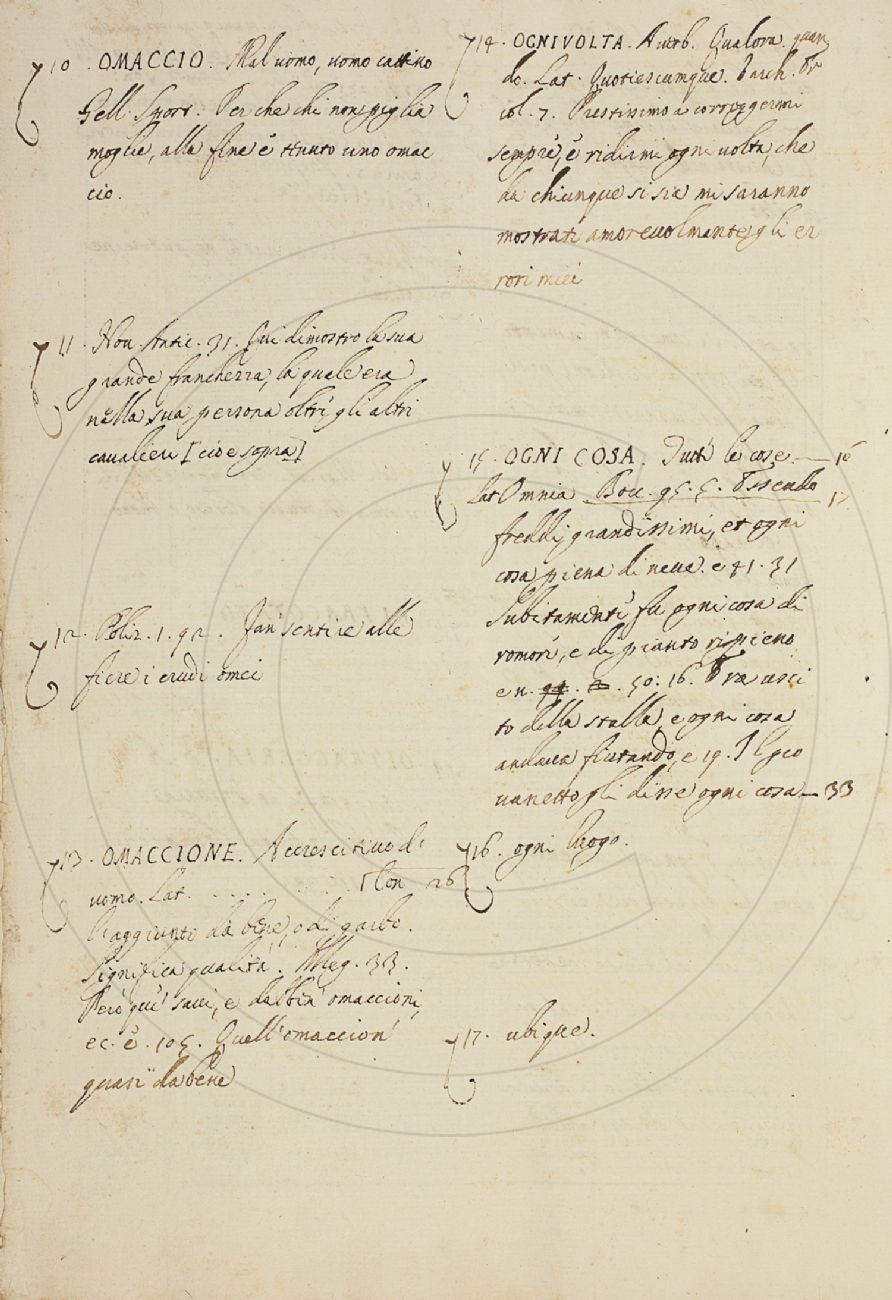 10. OMACCIO. Mal uomo, uomo cattivo
Gell. Sport. Per che chi non piglia
moglie, alla fine è tenuto uno omac
cio.
11. Nou. Antic. 31. Qui dimostro la sua
grande franchezza, la quale era
nella sua persona oltre gli altri
caualieri [cioe sopra]
12. Poliz. 1. 92. Fan sentire alle
fiere i crudi omei
13. OMACCIONE. Accrescitiuo di
uomo. Lat. . . . . . . . Con 26
l'aggiunto da bene, o di garbo.
Significa qualità. Alleg. 33.
Però que' saui, e dabben' omaccioni,
ec. e 105. Quell'omaccion'
quasi dabene
14. OGNIVOLTA. Auerb. Qualora, quan
do. Lat. Quotiescumque. Varch. Er
col. 7. Prestissimo a correggermi
sempre, e ridirmi ogni uolta, che
da chiunque si sia mi saranno
mostrati amoreuolmente gli er
rori miei
15. OGNI COSA. Tutte le cose. — 16
Lat Omnia Bocc. 95. 5. Essendo 17
freddi grandissimi, et ogni
cosa piena di neue. e 41. 31
Subitamente fu ogni cosa di
romore, e di pianto ripieno
e n. 50. 16. Era usci
to della stalla, e ogni cosa
andaua fiutando, e 19. Il gio
uanetto gli disse ogni cosa — 33
16. ogni luogo.
17. ubique.